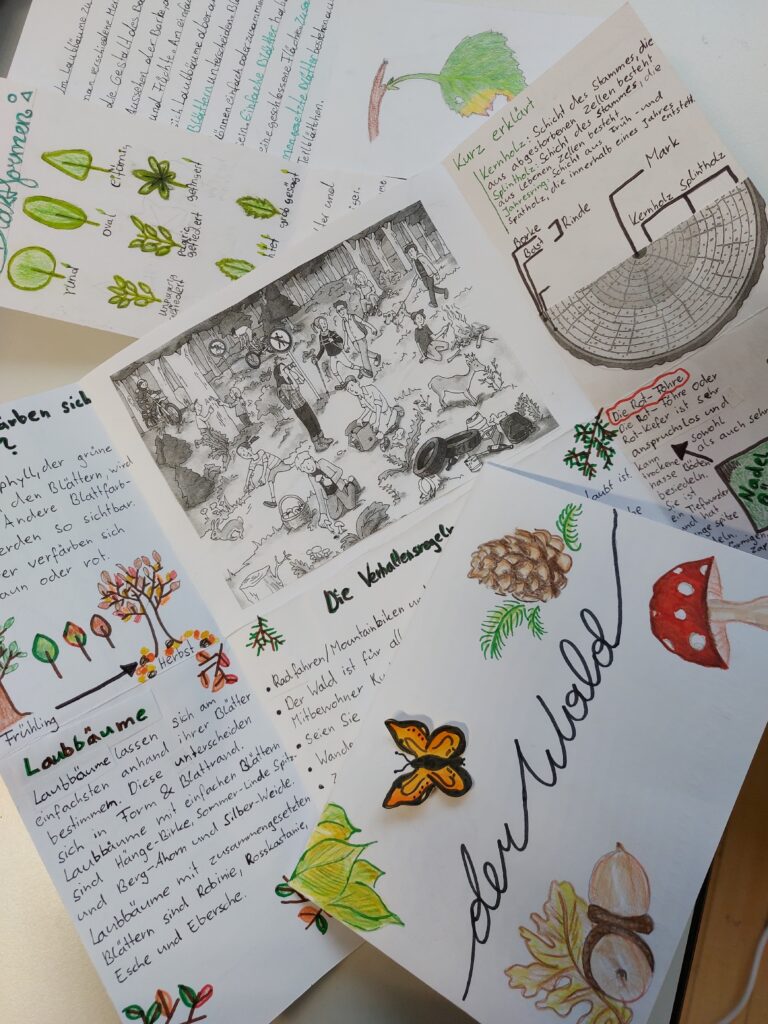 Laubbäume zu
nau verschiedene Mer
die Gestalt des Bau
Aussehen der Borke,
und Früchte. An einfach
sich Laubbäume aber an
Blättern unterscheiden. Blä
können einfach oder zusamm
sein. Einfache Blätter ha
eine geschlossene Fläche. Zusam
mengesetzte Blätter bestehen aus
Teilblättchen.
Blattformen:
eiförmig
oval
rund
gefingert
paarig
gefiedert
unpaarig
gefiedert
grob gesägt
Kurz erklärt
Kernholz: Schicht des Stammes, die
aus abgestorbenen Zellen besteht
Splintholz: Schicht des Stammes, die
aus lebenen Zellen besteht
Jahresring: Schicht aus Früh- und
Spätholz, die innerhalb eines Jahres
entsteht
Mark
Kernholz Splintholz
Borke
Bast
Rinde
Die Rot-Föhre
Die Rot-Föhre oder
Rot-Kiefer ist sehr
anspruchlos und
kann sowohl
trockene als auch sehr
nasse Böden
besiedeln.
ist
ein Tiefwurzler
und hat
Nadel
ärben sich
?
phyll, der grüne
den Blättern, wird
Andere Blattfarb-
erden so sichtbar.
er verfärben sich
aun oder rot.
Herbst
Frühling
Laubbäume
Laubbäume lassen sich am
einfachsten anhand ihrer Blätter
bestimmen. Diese unterscheiden
sich in Form & Blattrand.
Laubbäume mit einfachen Blättern
sind Hänge-Birke, Sommer-Linde Spitz-
und Berg-Ahorn und Silber-Weide.
Laubbäume mit zusammengesetzten
Blättern sind Robinie, Rosskastanie,
Esche und Ebersche.
Die Verhaltensregeln
• Radfahren/Mountainbiken un
• Der Wald ist für all
Mitbewohner
• Seien Sie
• Wande
der Wald